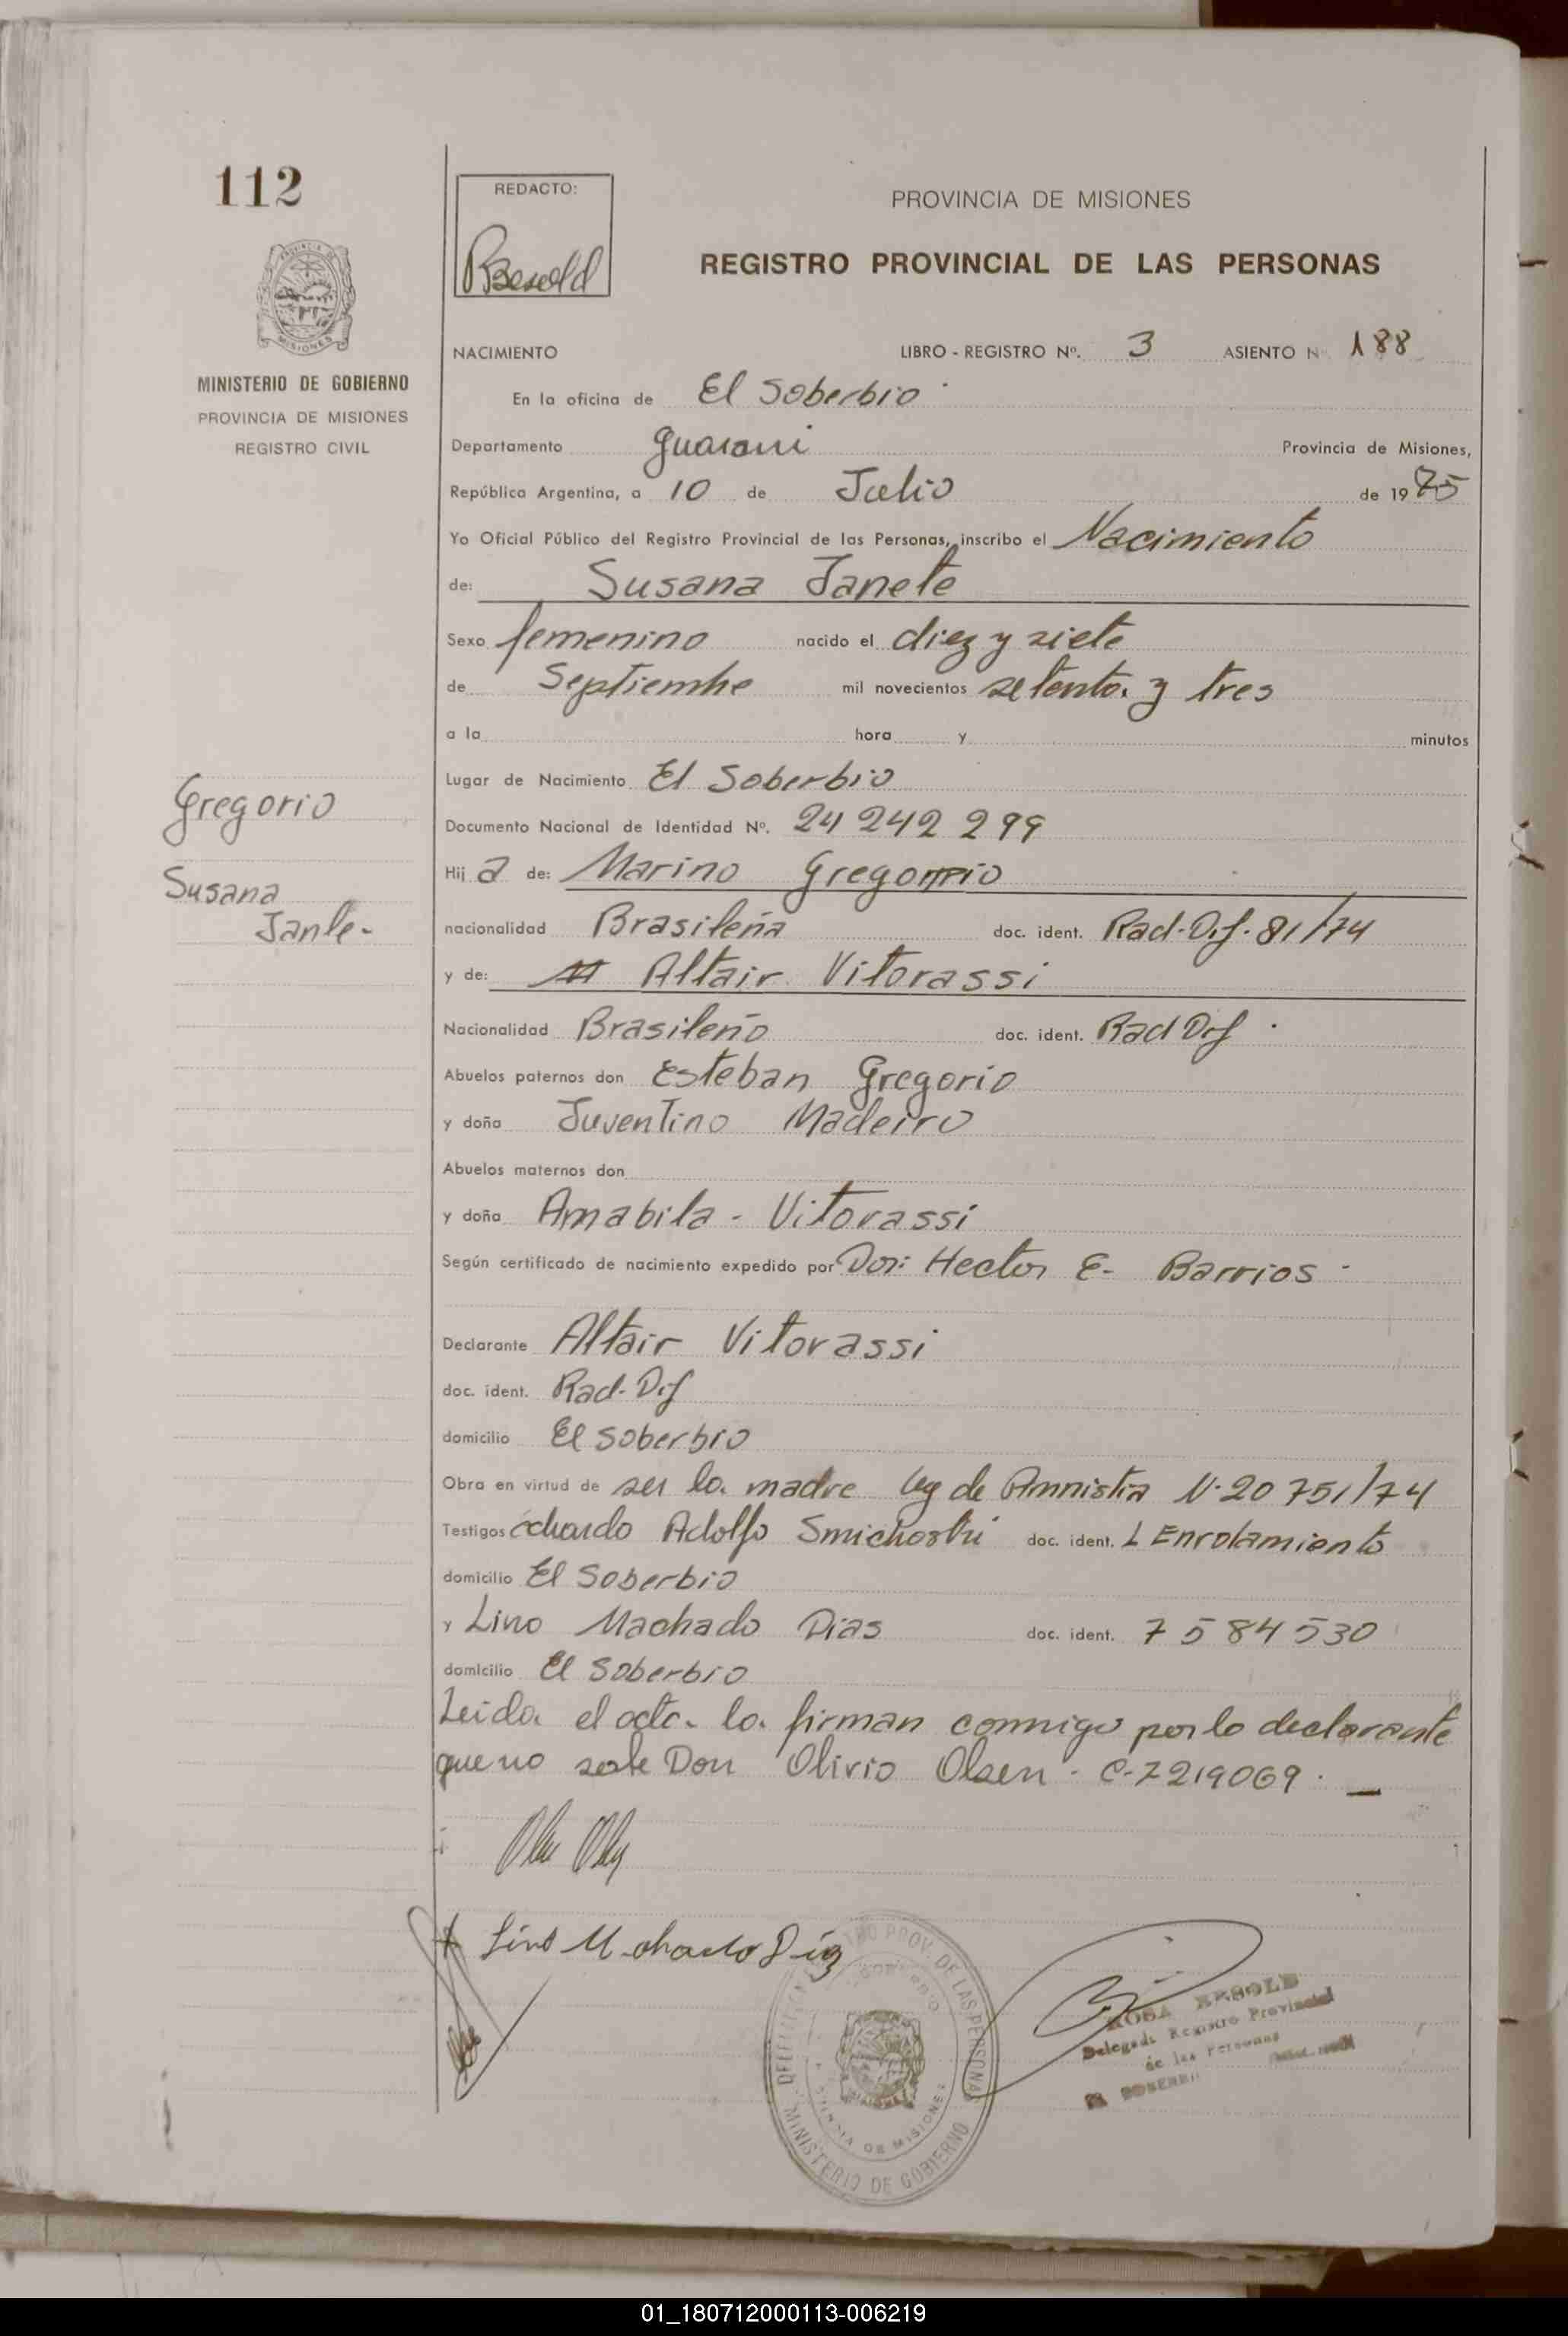 112
REDACTO:
PROVINCIA DE MISIONES
REGISTRO PROVINCIAL DE LAS PERSONAS
MISIONES
MINISTERIO DE GOBIERNO
PROVINCIA DE MISIONES
REGISTRO CIVIL
NACIMIENTO LIBRO - REGISTRO Nº. 3 ASIENTO Nº 188
En la oficina de El Soberbio
Departamento Guarani Provincia de Misiones,
República Argentina, a 10 de Julio de 1975
Yo Oficial Público del Registro Provincial de las Personas, inscribo el Nacimiento
de: Susana Janete
Sexo femenino nacido el diez y siete
de Septiembre mil novecientos setenta y tres
a la hora y minutos
Lugar de Nacimiento El Soberbio
Gregorio
Documento Nacional de Identidad Nº. 24 242 299
Hija de: Marino Gregorio
Susana
Janle-
nacionalidad Brasileña doc. ident. Rad. Dif. 81/74
y de: Altair Vitorassi
Nacionalidad Brasileño doc. ident. Rad Dif
Abuelos paternos don Esteban Gregorio
y doña Juventino Madeiro
Abuelos maternos don
y doña Amabila - Vitorassi
Según certificado de nacimiento expedido por Dor: Hector E- Barrios -
Declarante Altair Vitorassi
doc. ident. Rad- Dif
domicilio El Soberbio
Obra en virtud de ser la madre ley de Amnistia N. 20 751/74
Testigos Adolfo doc. ident. L Enrolamiento
domicilio El Soberbio
y Lino Machado Dias doc. ident. 7584530
domicilio El Soberbio
Leida el acta la firman conmigo por lo declarante
que no sabe Don Olivio Olsen - C-7219069. —
Lino Machado Diaz
REGISTRO PROV. DE LAS PERSONAS
PROVINCIA DE MISIONES
MINISTERIO DE GOBIERNO
ROSA BESOLD
Delegada Registro Provincial
de las Personas
EL SOBERBIO
01_180712000113-006219